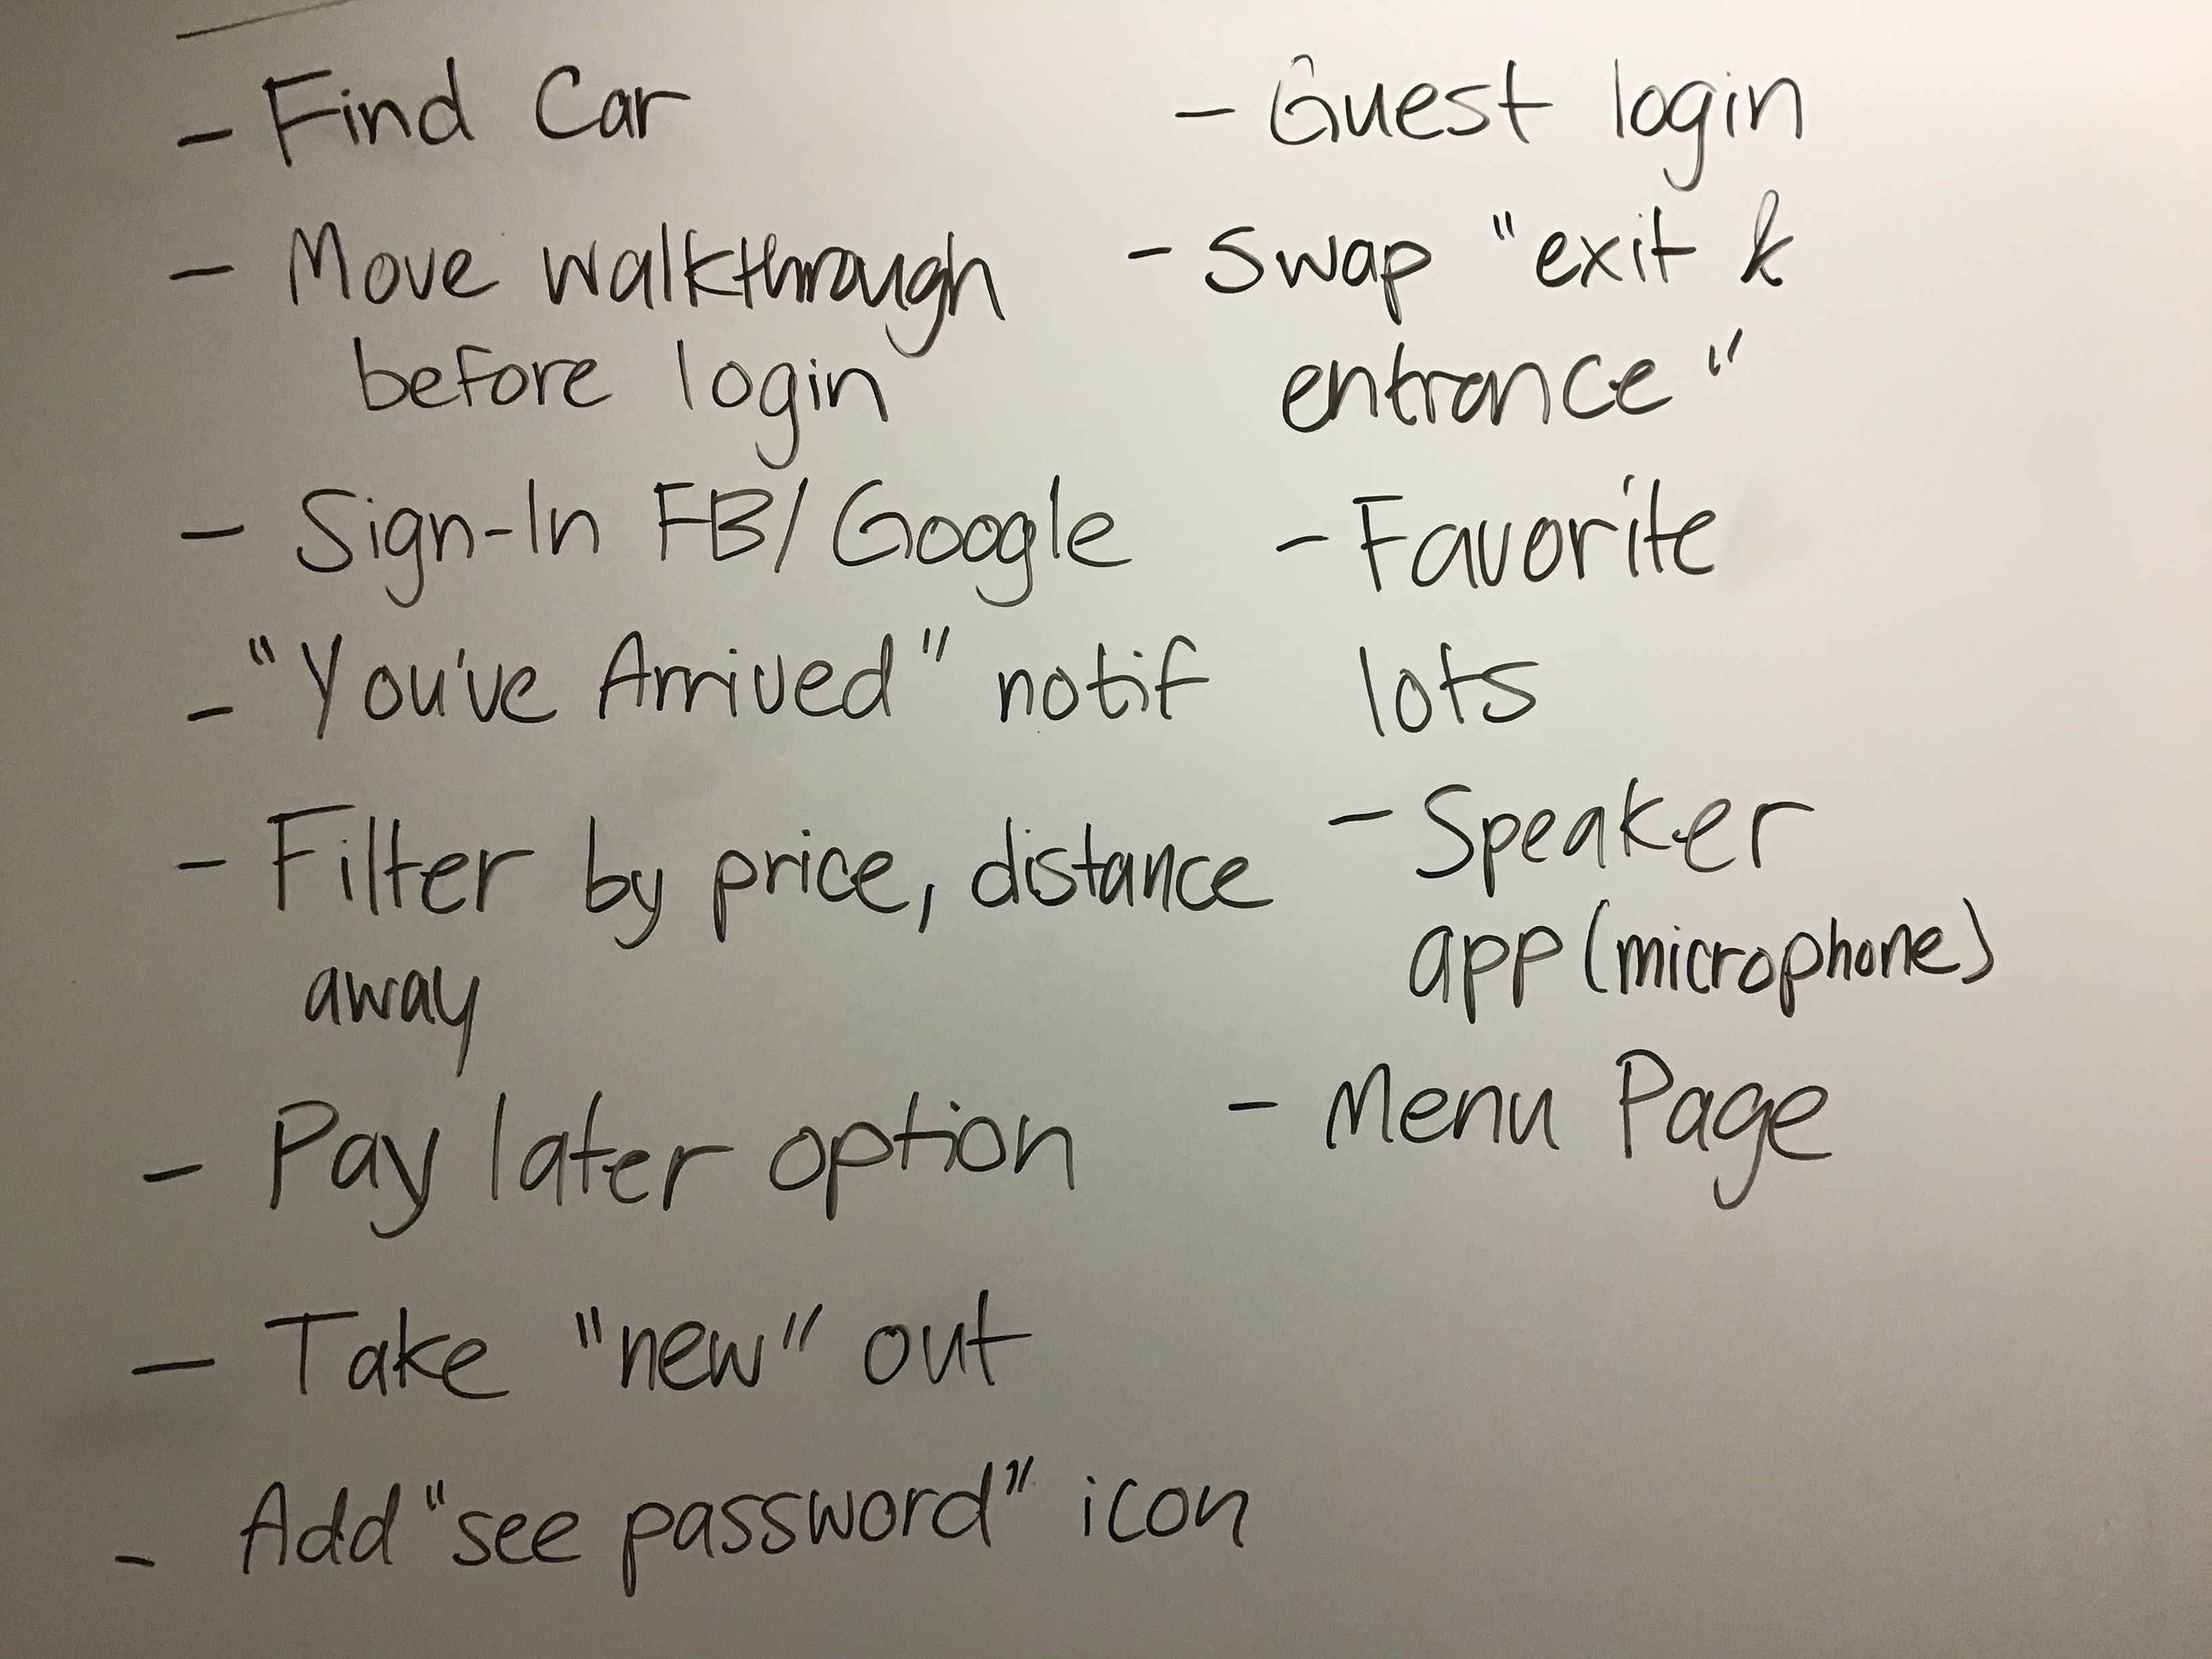 - Find Car
- Move walkthrough
before login
- Sign-In FB/Google
- "You've Arrived" notif
- Filter by price, distance
away
- Pay later option
- Take "new" out
- Add "see password" icon
- Guest login
- Swap "exit &
entrance"
- Favorite
lots
- Speaker
app (microphone)
- Menu Page